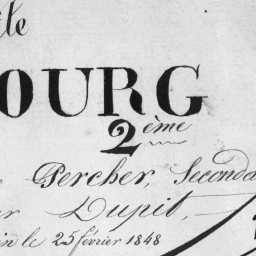 ite
OURG
2ème
Percher, Seconda
er Dupit,
in le 25 février 1848